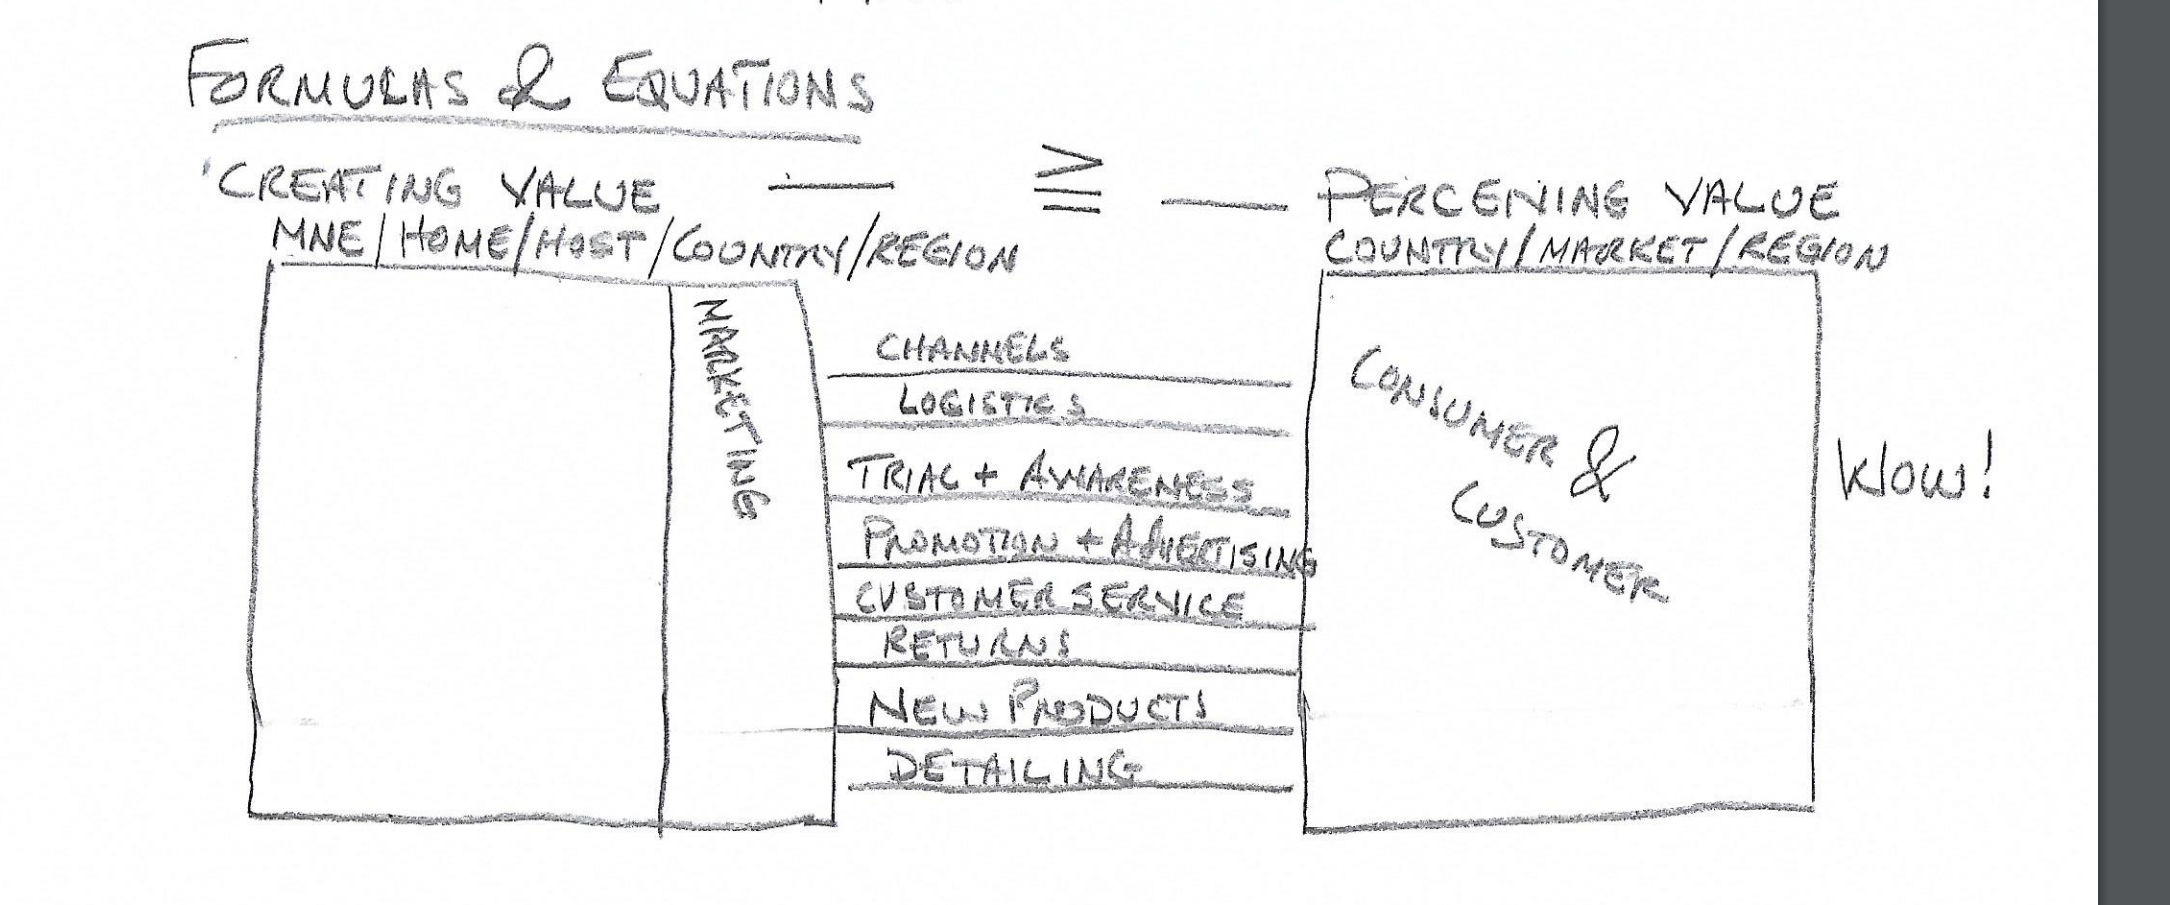 FORMULAS & EQUATIONS
CREATING VALUE — ≧ — PERCEIVING VALUE
MNE/HOME/HOST/COUNTRY/REGION
COUNTRY/MARKET/REGION
MARKETING
CHANNELS
LOGISTICS
TRIAL + AWARENESS
PROMOTION + ADVERTISING
CUSTOMER SERVICE
RETURNS
NEW PRODUCTS
DETAILING
CONSUMER &
CUSTOMER
WOW!